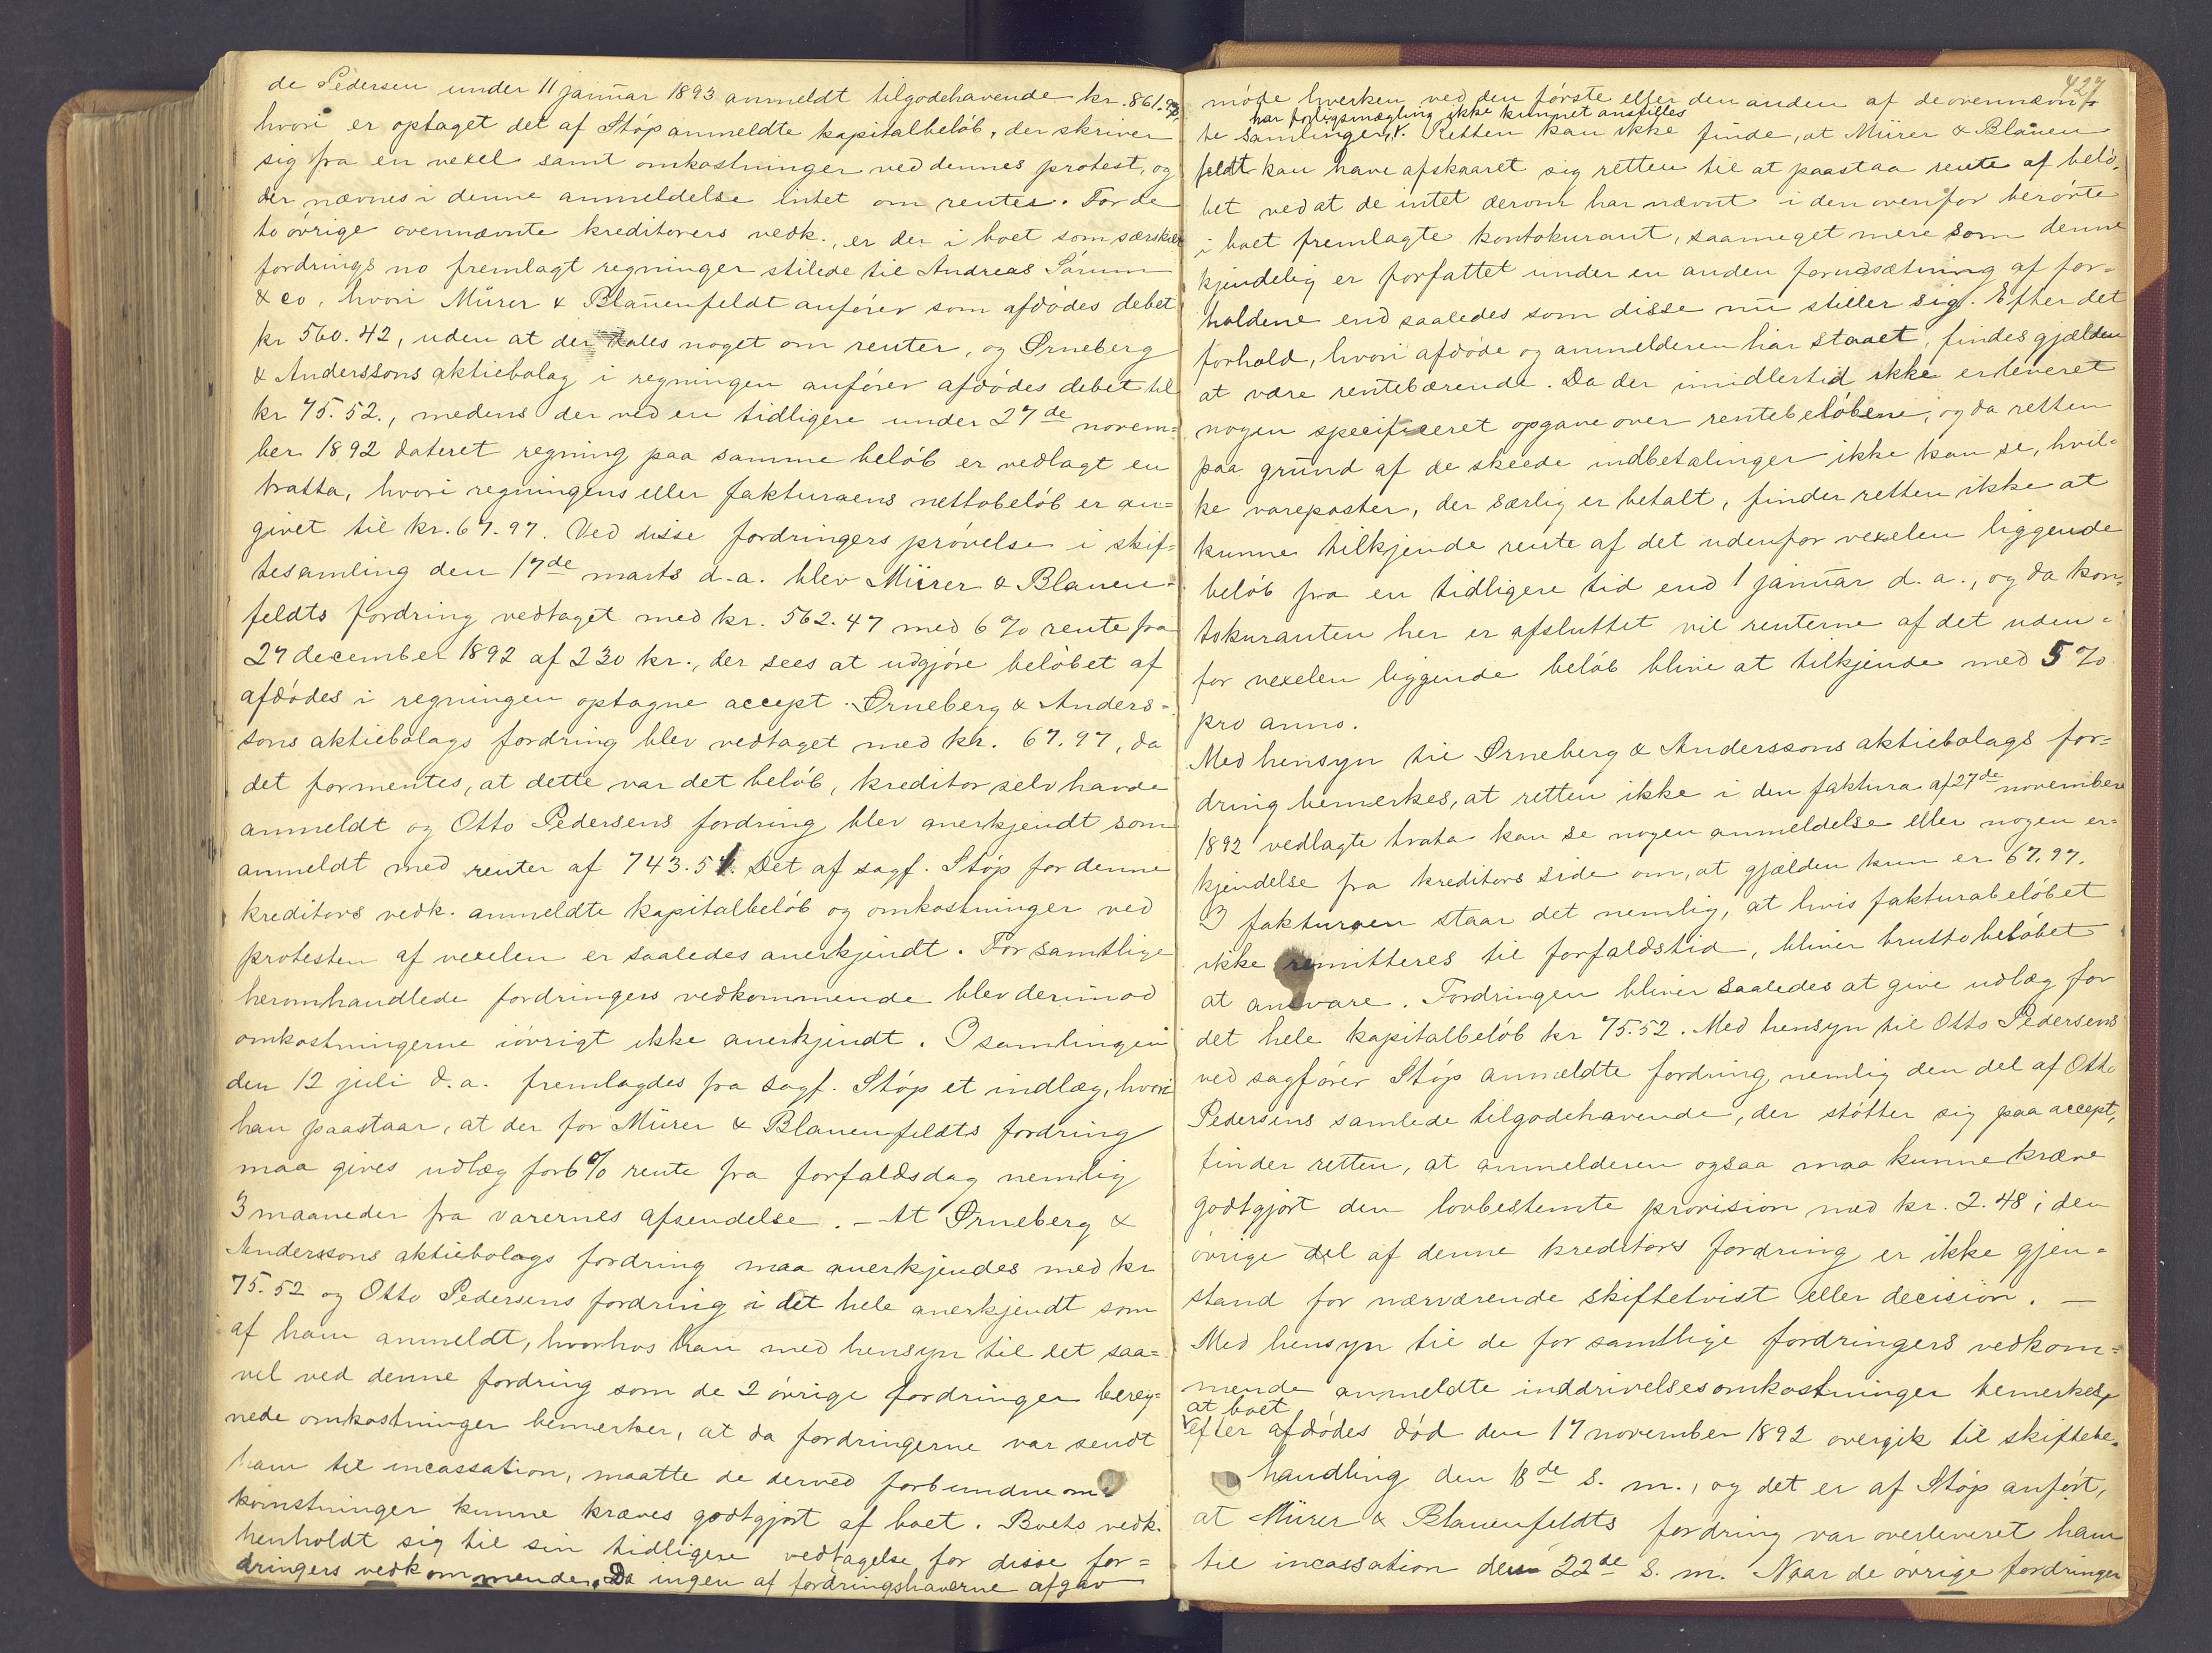 de Pedersen under 11 januar 1893 anmeldt tilgodehavende kr. 861.93,
hvori er optaget det af Støp anmeldte kapitalbeløb, der skriver
sig fra en vexel samt omkostninger ved dennes protest, og
der nævnes i denne anmeldelse intet om renter. For de
to øvrige ovennævnte kreditorers vedk., er der i boet som særskilt
fordrings no fremlagt regninger stilede til Andreas Sørum
& co, hvori Mürer & Blauenfeldt anfører som afdødes debet
kr 560.42, uden at der tales noget om renter, og Ørneberg
& Anderssons aktiebolag i regningen anfører afdødes debet til
kr 75.52., medens der ved en tidligere under 27de novem=
ber 1892 dateret regning paa samme beløb er vedlagt en
tratta, hvori regningens eller fakturaens nettobeløb er an=
givet til kr. 67.97. Ved disse fordringers prøvelse i skif=
tesamling den 17de marts d.a. blev Mürer & Blauen=
feldts fordring vedtaget med kr. 562.47 med 6 % rente fra
27 december 1892 af 230 kr., der sees at udgjøre beløbet af
afdødes i regningen optagne accept. Ørneberg & Anders=
sons aktiebolags fordring blev vedtaget med kr. 67.97, da
det formentes, at dette var det beløb, kreditor selv havde
anmeldt og Otto Pedersens fordring blev anerkjendt som
anmeldt med renter af 743.51. Det af sagf. Støp for denne
kreditors vedk. anmeldte kapitalbeløb og omkostninger ved
protesten af vexelen er saaledes anerkjendt. For samtlige
heromhandlede fordringers vedkommende blev derimod
omkostningerne iøvrigt ikke anerkjendt. I samlingen
den 12 juli d.a. fremlagdes fra sagf. Støp et indlæg, hvori
han paastaar, at der for Mürer & Blauenfeldts fordring
maa gives udlæg for 6 % rente fra forfaldsdag nemlig
3 maaneder fra varernes afsendelse. – At Ørneberg &
Anderssons aktiebolags fordring maa anerkjendes med kr
75.52 og Otto Pedersens fordring i det hele anerkjendt som
af ham anmeldt, hvorhos han med hensyn til det saa=
vel ved denne fordring som de 2 øvrige fordringer bereg=
nede omkostninger bemerker, at da fordringerne var sendt
ham til incassation, maatte de derved forbundne om=
komstninger kunne kræves godtgjort af boet. Boets vedk.
henholdt sig til sin tidligere vedtagelse for disse for=
dringers vedkommende. Da ingen af fordringshaverne afgav
427
møde hverken ved den første eller den anden af de ovennævn=
har forligsmægling ikke kunnet anstilles
te samlinger, v. Retten kan ikke finde, at Mürer & Blauen
feldt kan have afskaaret sig retten til at paastaa rente af belø=
bet ved at de intet derom har nævnt i den ovenfor berørte
i boet fremlagte kontokurant, saameget mere som denne
kjendelig er forfattet under en anden forudsætning af for=
holdene end saaledes som disse nu stiller sig. Efter det
forhold, hvori afdøde og anmelderen har staaet, findes gjælden
at være rentebærende. Da der imidlertid ikke er leveret
nogen specificeret opgave over rentebeløbene, og da retten
paa grund af de skeede indbetalinger ikke kan se, hvil=
ke vareposter, der særlig er betalt, finder retten ikke at
kunne tilkjende rente af det udenfor vexelen liggende
beløb fra en tidligere tid end 1 januar d.a., og da kon=
tokuranten her er afsluttet vil renterne af det uden=
for vexelen liggende beløb blive at tilkjende med 5 %
pro anno.
Med hensyn til Ørneberg & Anderssons aktiebolags for=
dring bemerkes, at retten ikke i den faktura af 27de november
1892 vedlagte trata kan se nogen anmeldelse eller nogen er=
kjendelse fra kreditors side om, at gjælden kun er 67.97.
I fakturaen staar det nemlig, at hvis fakturabeløbet
ikke remitteres til forfaldstid, bliver bruttobeløbet
at ansvare. Fordringen bliver saaledes at give udlæg for
det hele kapitalbeløb kr 75.52. Med hensyn til Otto Pedersens
ved sagfører Støp anmeldte fordring, nemlig den del af Otto
Pedersens samlede tilgodehavende, der støtter sig paa accept,
finder retten, at anmelderen ogsaa maa kunne kræve
godtgjort den lovbestemte provision med kr. 2.48; den
øvrige del af denne kreditors fordring er ikke gjen=
stand for nærværende skiftetvist eller decision. –
Med hensyn til de for samtlige fordringers vedkom=
mende anmeldte inddrivelsesomkostninger bemerkes,
at boet
efter afdødes død den 17 november 1892 overgik til skiftebe=
handling den 18de s. m., og det er af Støp anført,
at Mürer & Blauenfeldts fordring var overleveret ham
til incassation den 22de s. m. Naar de øvrige fordringer